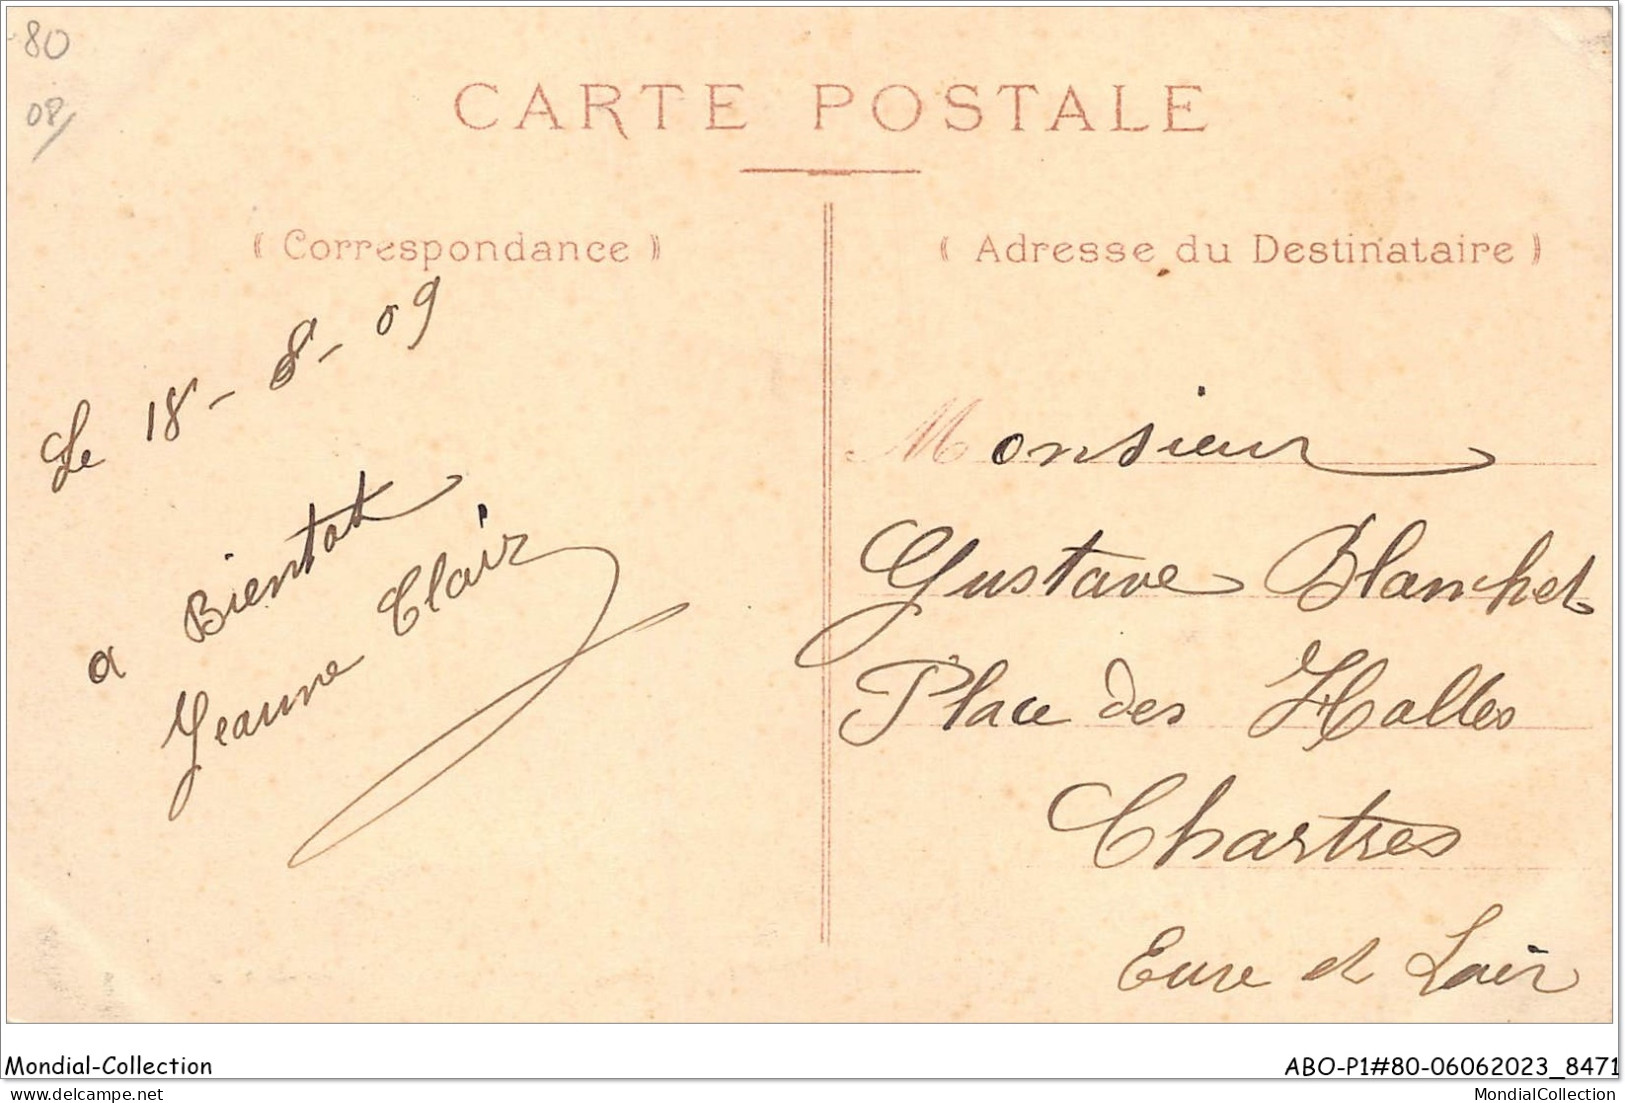 80
08/
CARTE POSTALE
( Correspondance )
( Adresse du Destinataire )
Le 18 - 8 - 09
a Bientot
Jeanne Clair
Monsieur
Gustave Blanchet
Place des Halles
Chartres
Eure et Loir
Mondial-Collection
ABO-P1#80-06062023_8471
delcampe.net
MondialCollection